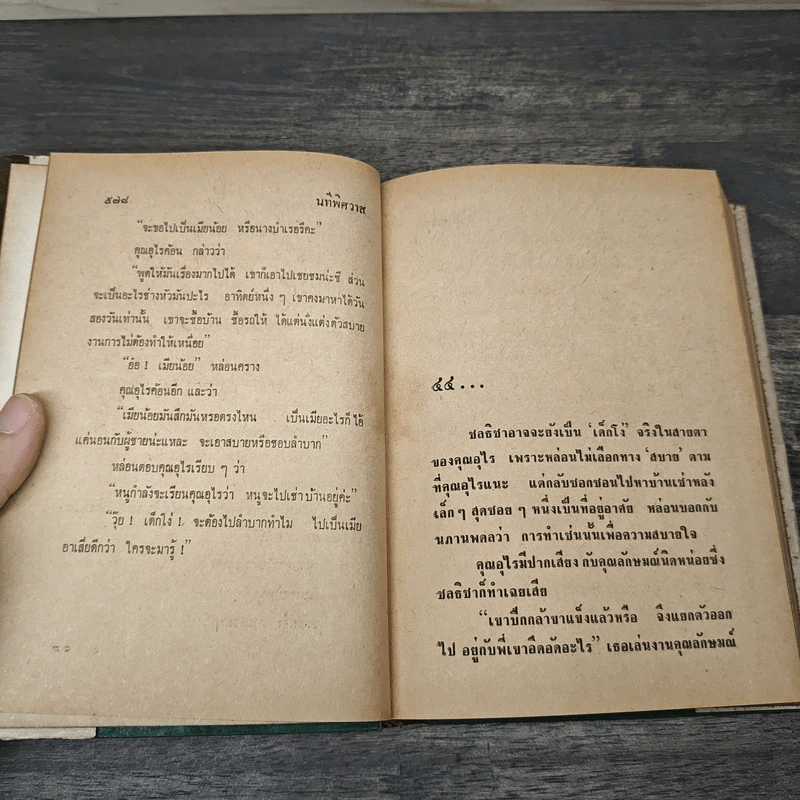 ๕๗๘
นทีพิศวาส
“จะขอไปเป็นเมียน้อย หรือนางบำเรอรึคะ”
คุณอุไรค้อน กล่าวว่า
“พูดให้มันเรื่องมากไปได้ เขาก็เอาไปเชยชมน่ะซี ส่วน
จะเป็นอะไรช่างหัวมันปะไร อาทิตย์หนึ่ง ๆ เขาคงมาหาได้วัน
สองวันเท่านั้น เขาจะซื้อบ้าน ซื้อรถให้ ได้แต่นั่งแต่งตัวสบาย
งานการไม่ต้องทำให้เหนื่อย”
“อ๋อ ! เมียน้อย” หล่อนคราง
คุณอุไรค้อนอีก และว่า
“เมียน้อยมันสึกมันหรอตรงไหน เป็นเมียอะไรก็ไอ้
แค่นอนกับผู้ชายน่ะแหละ จะเอาสบายหรือชอบลำบาก”
หล่อนตอบคุณอุไรเรียบ ๆ ว่า
“หนูกำลังจะเรียนคุณอุไรว่า หนูจะไปเช่าบ้านอยู่ค่ะ”
“วุ๊ย ! เด็กโง่ ! จะต้องไปลำบากทำไม ไปเป็นเมีย
อาเสี่ยดีกว่า ใครจะมารู้ !”
๔๔...
ชลธิชาอาจจะยังเป็น ‘เด็กโง่’ จริงในสายตา
ของคุณอุไร เพราะหล่อนไม่เลือกทาง ‘สบาย’ ตาม
ที่คุณอุไรแนะ แต่กลับซอกซอนไปหาบ้านเช่าหลัง
เล็กๆ สุดซอย ๆ หนึ่งเป็นที่อยู่อาศัย หล่อนบอกกับ
นภานพดลว่า การทำเช่นนั้นเพื่อความสบายใจ
คุณอุไรมีปากเสียง กับคุณลักษมณ์นิดหน่อยซึ่ง
ชลธิชาก็ทำเฉยเสีย
“เขาปีกกล้าขาแข็งแล้วหรือ จึงแยกตัวออก
ไป อยู่กับพี่เขาอึดอัดอะไร” เธอเล่นงานคุณลักษมณ์